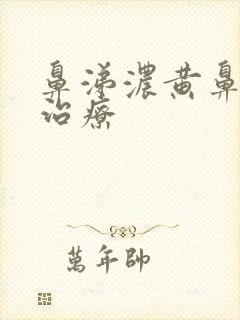 鼻涕濃黃鼻
治療
萬年帥